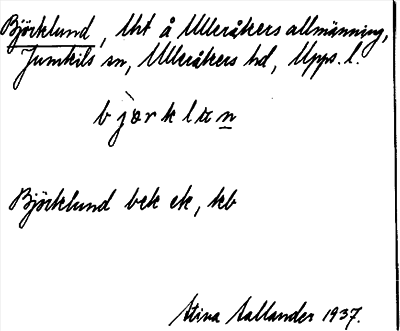 Björklund, lht å Ulleråkers allmänning,
Jumkils sn, Ulleråkers hd, Upps. l.
Björklund bek ek, kb
Stina Sallander 1937.